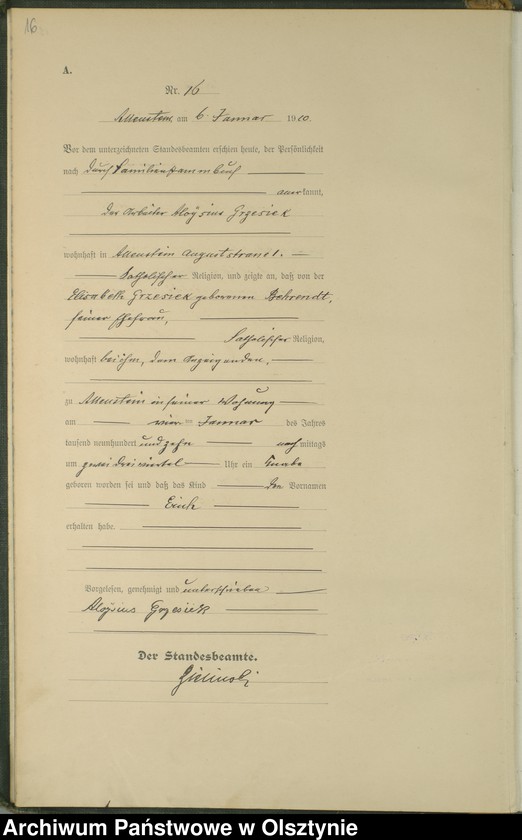 16
A.
Nr. 16
Allenstein, am 6. Januar 1910.
Vor dem unterzeichneten Standesbeamten erschien heute, der Persönlichkeit
nach durch Familienstammbuch
anerkannt,
der Arbeiter Aloÿsius Grzesiek
wohnhaft in Allenstein
katholischer Religion, und zeigte an, daß von der
Elisabeth Grzesiek geborenen Behrendt,
seiner Ehefrau,
katholischer Religion,
wohnhaft bei ihm, dem Anzeigenden,
zu Allenstein in seiner Wohnung
am vier Januar des Jahres
tausend neunhundert und zehn nachmittags
um zwei dreiviertel Uhr ein Knabe
geboren worden sei und daß das Kind den Vornamen
Erich
erhalten habe.
Vorgelesen, genehmigt und unterschrieben
Aloÿsius Grzesiek
Der Standesbeamte.
Archiwum Państwowe w Olsztynie